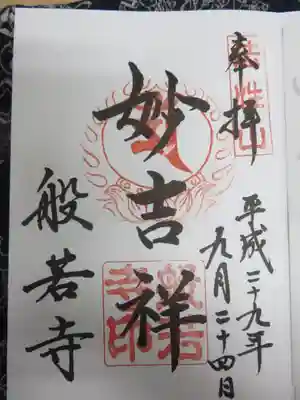 奉拝
平成二十九年
九月二十四日
妙吉祥
般若寺
般若
寺印